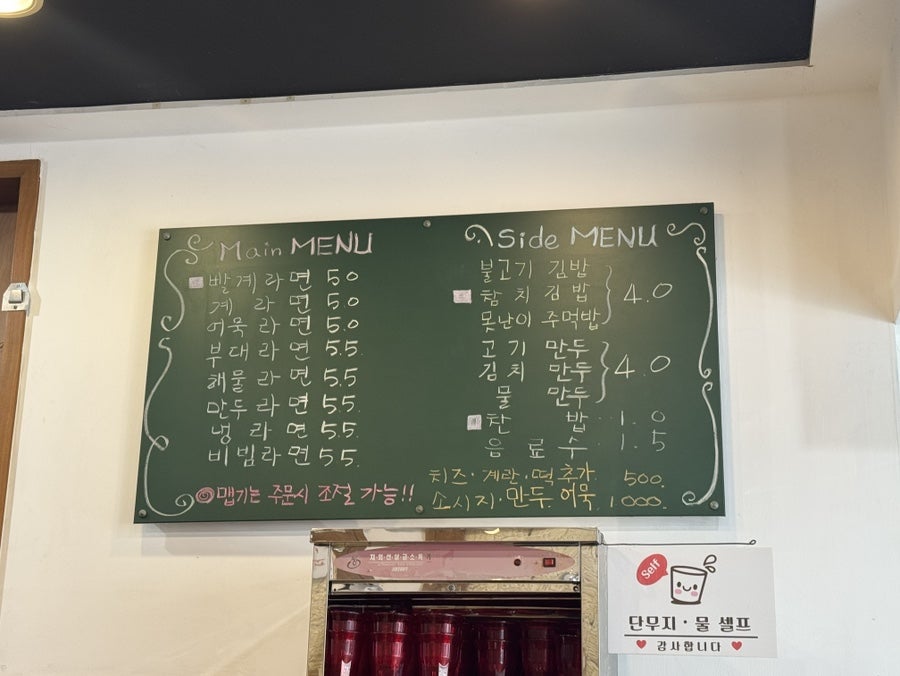 Main MENU
빨계라면 5.0
계라면 5.0
어묵라면 5.0
부대라면 5.5.
해물라면 5.5
만두라면 5.5.
냉라면 5.5.
비빔라면 5.5.
맵기는 주문시 조절 가능!!
Side MENU
불고기 김밥
참치 김밥 4.0
못난이 주먹밥
고기 만두
김치 만두 4.0
물 만두
찬 밥 1.0
음료수 1.5
치즈·계란·떡 추가 500.
소시지·만두.어묵. 1000.
Self
단무지·물 셀프
감사합니다